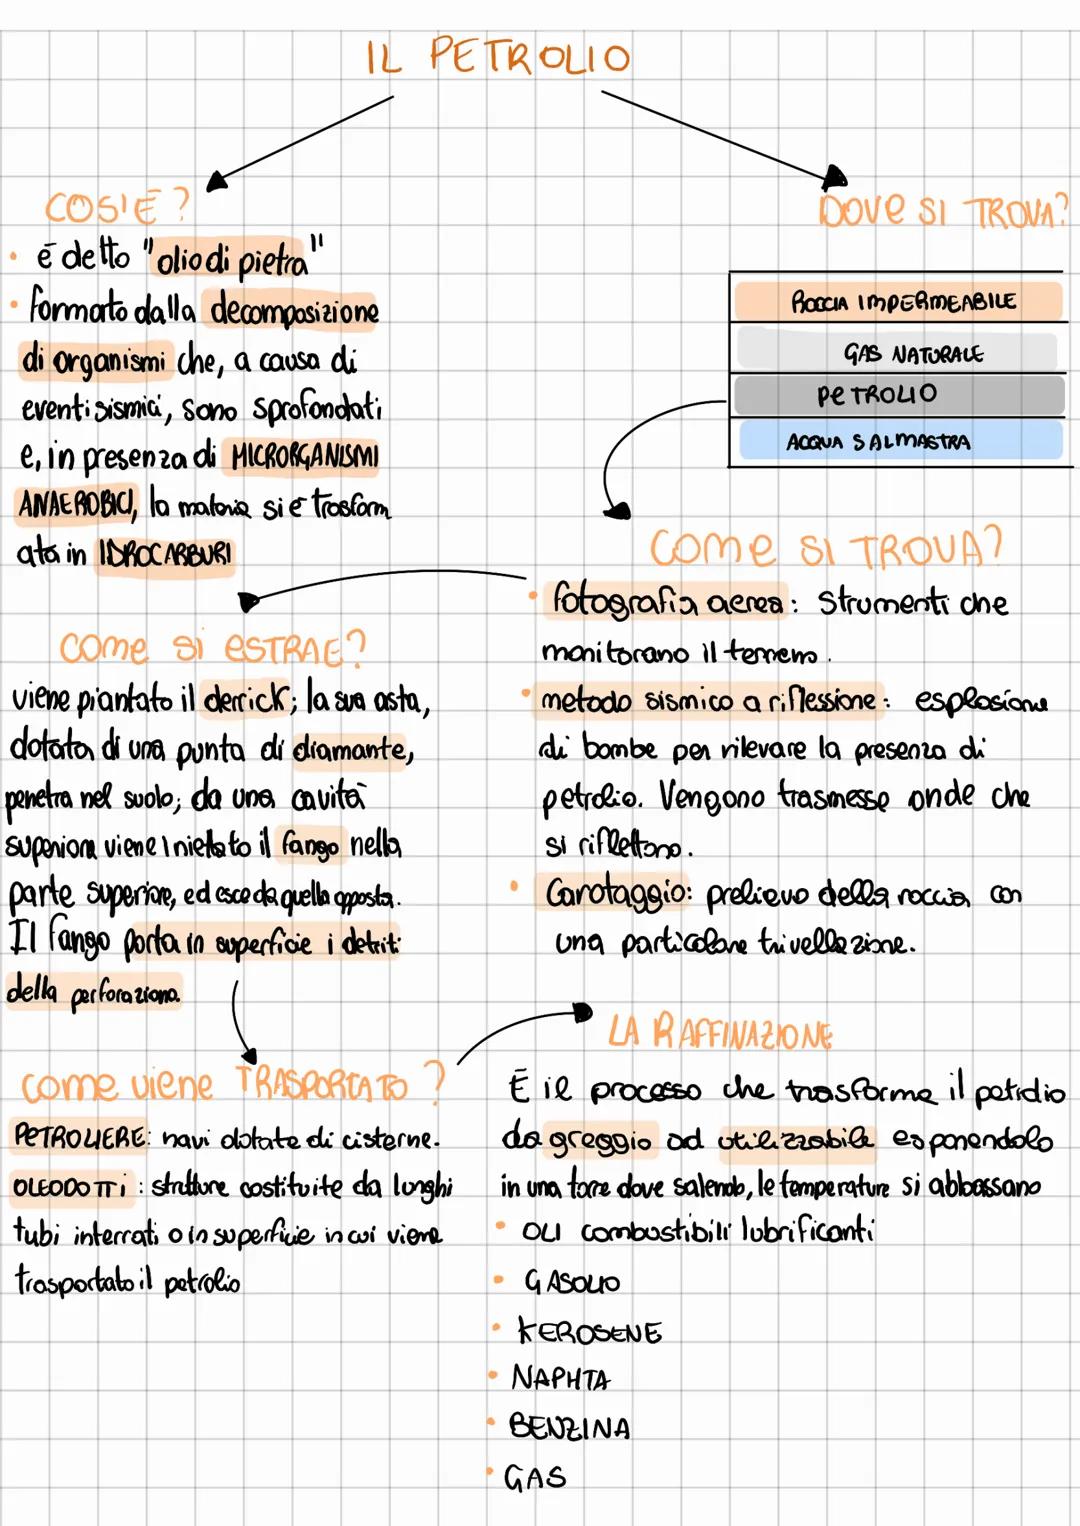 IL PETROLIO
COS'È?
• è detto "olio di pietra"
• formato dalla decomposizione
di organismi che, a causa di
eventi sismici, sono sprofondati
e, in presenza di MICRORGANISMI
ANAEROBICI, la materia si è trasform
ata in IDROCARBURI
DOVE SI TROVA?
ROCCIA IMPERMEABILE
GAS NATURALE
PETROLIO
ACQUA SALMASTRA
COME SI TROVA?
• fotografia aerea: strumenti che
monitorano il terreno.
• metodo sismico a riflessione: esplosione
di bombe per rilevare la presenza di
petrolio. Vengono trasmesse onde che
si riflettono.
• Carotaggio: prelievo della roccia con
una particolare trivellazione.
COME SI ESTRAE?
viene piantato il derrick; la sua asta,
dotata di una punta di diamante,
penetra nel suolo; da una cavità
superiore viene iniettato il fango nella
parte superiore, ed esce da quella opposta.
Il fango porta in superficie i detriti
della perforazione.
COME VIENE TRASPORTATO?
PETROLIERE: navi dotate di cisterne.
OLEODOTTI: strutture costituite da lunghi
tubi interrati o in superficie in cui viene
trasportato il petrolio
LA RAFFINAZIONE
È il processo che trasforma il petrolio
da greggio ad utilizzabile esponendolo
in una torre dove salendo, le temperature si abbassano
• OLI combustibili lubrificanti
• GASOLIO
• KEROSENE
• NAPHTA
• BENZINA
• GAS